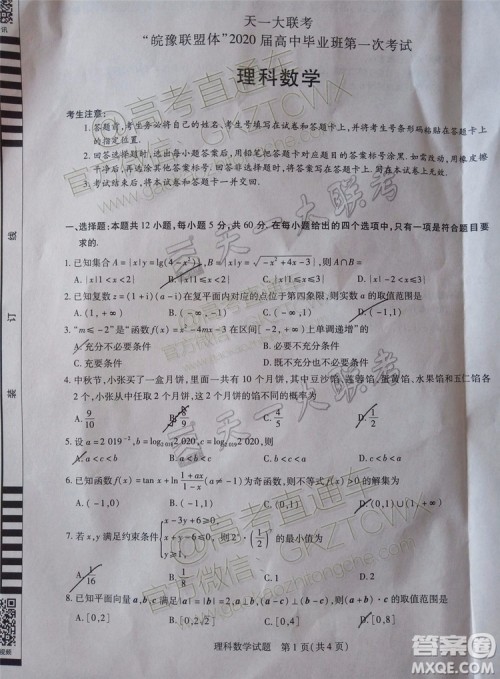 天一大联考
“皖豫联盟体”2020届高中毕业班第一次考试
理科数学
考生注意:
1.答题前,考生务必将自己的姓名、考生号填写在试卷和答题卡上,并将考生号条形码粘贴在答题卡上的指定位置.
2.回答选择题时,选出每小题答案后,用铅笔把答题卡对应题目的答案标号涂黑.如需改动,用橡皮擦干净后,再选涂其他答案标号.回答非选择题时,将答案写在答题卡上.写在本试卷上无效.
3.考试结束后,将本试卷和答题卡一并交回.
一、选择题:本题共12小题,每小题5分,共60分.在每小题给出的四个选项中,只有一项是符合题目要求的.
1.已知集合A={x|y=lg(4-x²)},B={x|y=√(-x²+4x-3)},则A∩B=
A.{x|1<x<2} B.{x|1≤x<2} C.{x|1≤x≤2}
2.已知复数z=(1+i)(a-i)在复平面内对应的点位于第四象限,则实数a的取值范围是
A.(-∞,1) B.(-∞,-1) C.(1,+∞) D.(-1,1)
3.“m≤-2”是“函数f(x)=x²-4mx-3在区间 上单调递增”的
A.充分不必要条件 B.必要不充分条件
C.充要条件 D.既不充分也不必要条件
4.中秋节,小张买了一盒月饼,里面一共有10个月饼,其中豆沙馅、莲蓉馅、蛋黄馅、水果馅和五仁馅各2个,小张从中 月饼,这 月饼的馅不同的概率为
A.9/10 B.8/9 D.1/2
5.设a=2 019⁻²,b=log₂₀₁₉2 020,c=log₂₀₂₀2 019,则
A.a<c<b B.a<b<c
6.已知函数f(x)=tan x·ln (1+ax)/(1-x)(a≠-1)为奇函数,则不等式f(x)>0的解集为
A.(-1,0) B.(-1,1) D.(0,1)∪(1,+∞)
7.若x,y满足约束条件 x-3y+6≥0, x+y-6≤0, y≥1, 则2ˣ·(1/2)ʸ的最小值为
A.1/16 B.1/8 C.1 D.2
8.已知平面向量a,b,c满足|a|=|b|=2,a⊥b,(a-c)⊥(b-c),则(a+b)·c的取值范围是
A.[0,2] D.[0,8]
理科数学试题 第1页(共4页)
线
订
装
@高考直通车
GKZTCWX
天一大联考
官方微信:GKZTCWX
答案圈
MXQE.COM